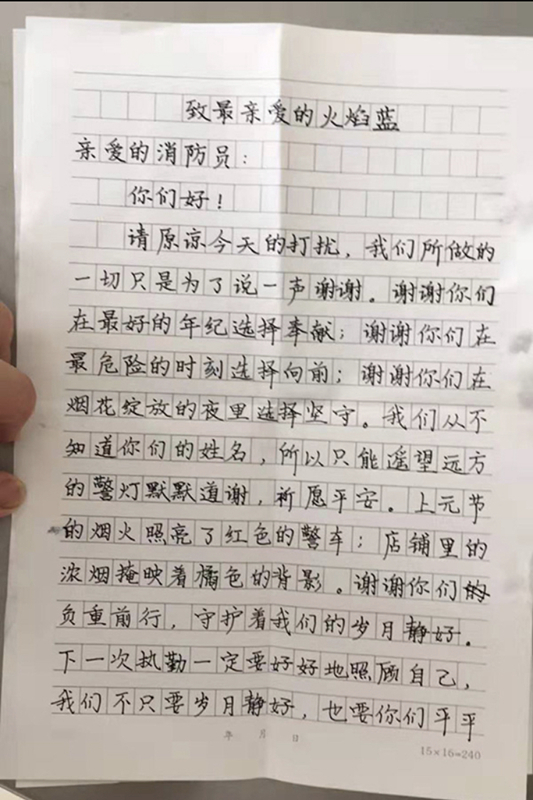 致最亲爱的火焰蓝
亲爱的消防员：
你们好！
请原谅今天的打扰，我们所做的
一切只是为了说一声谢谢。谢谢你们
在最好的年纪选择奉献；谢谢你们在
最危险的时刻选择向前；谢谢你们在
烟花绽放的夜里选择坚守。我们从不
知道你们的姓名，所以只能遥望远方
的警灯默默道谢，祈愿平安。上元节
的烟火照亮了红色的警车；店铺里的
浓烟掩映着橘色的背影。谢谢你们的
负重前行，守护着我们的岁月静好。
下一次执勤一定要好好地照顾自己，
我们不只要岁月静好，也要你们平平
年 月 日
15×16=240